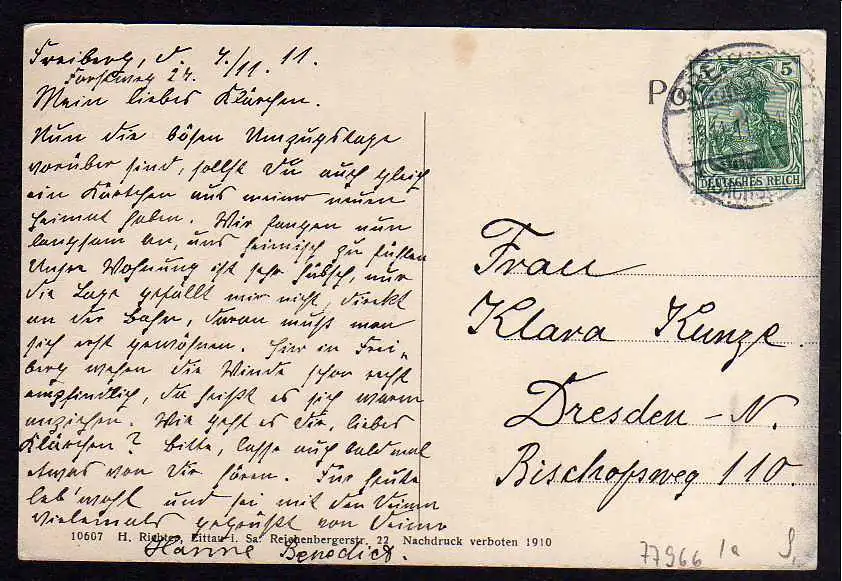 Freiberg, d. 4./11. 11.
Forstweg 27.
Mein liebes Klärchen.
Nun die bösen Umzugstage
vorüber sind, sollst Du auch gleich
ein Kärtchen aus meiner neuen
Heimat haben. Wir fangen nun
langsam an, uns heimisch zu fühlen
Unsre Wohnung ist sehr hübsch, nur
die Lage gefällt mir nicht, direkt
an der Bahn, daran muß man
sich erst gewöhnen. Hier in Frei-
berg wehen die Winde schon recht
empfindlich, da heißt es sich warm
anziehen. Wie geht es Dir, liebes
Klärchen? Bitte, lasse auch bald mal
etwas von Dir hören. Für heute
leb' wohl und sei mit den Deinen
vielemals gegrüßt von Deiner
Hanne Benedict.
10607 H. Richter, Zittau i. Sa. Reichenbergerstr. 22 Nachdruck verboten 1910
Po
5
DEUTSCHES REICH
Frau
Klara Kunze.
Dresden-N.
Bischofsweg 110.
77966 1a